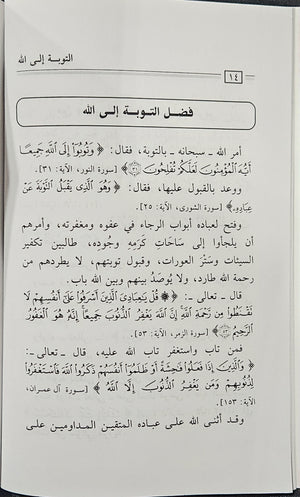 التوبة إلى الله
١٤
فضل التوبة إلى الله
أمر الله ـ سبحانه ـ بالتوبة، فقال: ﴿ وَتُوبُوٓا۟ إِلَى ٱللَّهِ جَمِيعًا
أَيُّهَ ٱلْمُؤْمِنُونَ لَعَلَّكُمْ تُفْلِحُونَ ﴾ [سورة النور، الآية: ٣١].
ووعد بالقبول عليها، فقال: ﴿ وَهُوَ ٱلَّذِى يَقْبَلُ ٱلتَّوْبَةَ عَنْ
عِبَادِهِۦ ﴾ [سورة الشورى، الآية: ٢٥].
وفتح لعباده أبواب الرجاء في عفوه ومغفرته، وأمرهم
أن يلجأوا إلى سَاحَاتِ كَرَمِهِ وجُودِه، طالبين تكفير
السيئات وستْرَ العورات، وقبول توبتهم، لا يطردهم من
رحمة الله طارد، ولا يُوصَدُ بينهم وبين الله باب.
قال ـ تعالى ـ: ﴿ ۞ قُلْ يَٰعِبَادِىَ ٱلَّذِينَ أَسْرَفُوا۟ عَلَىٰٓ أَنفُسِهِمْ لَا
تَقْنَطُوا۟ مِن رَّحْمَةِ ٱللَّهِ إِنَّ ٱللَّهَ يَغْفِرُ ٱلذُّنُوبَ جَمِيعًا إِنَّهُۥ هُوَ ٱلْغَفُورُ
ٱلرَّحِيمُ ﴾ [سورة الزمر، الآية: ٥٣].
فمن تاب واستغفر تاب الله عليه، قال ـ تعالى ـ:
﴿ وَٱلَّذِينَ إِذَا فَعَلُوا۟ فَٰحِشَةً أَوْ ظَلَمُوٓا۟ أَنفُسَهُمْ ذَكَرُوا۟ ٱللَّهَ فَٱسْتَغْفَرُوا۟
لِذُنُوبِهِمْ وَمَن يَغْفِرُ ٱلذُّنُوبَ إِلَّا ٱللَّهُ ﴾ [سورة آل عمران،
الآية: ١٥٣].
وقد أثنى الله على عباده المتقين المداومين على